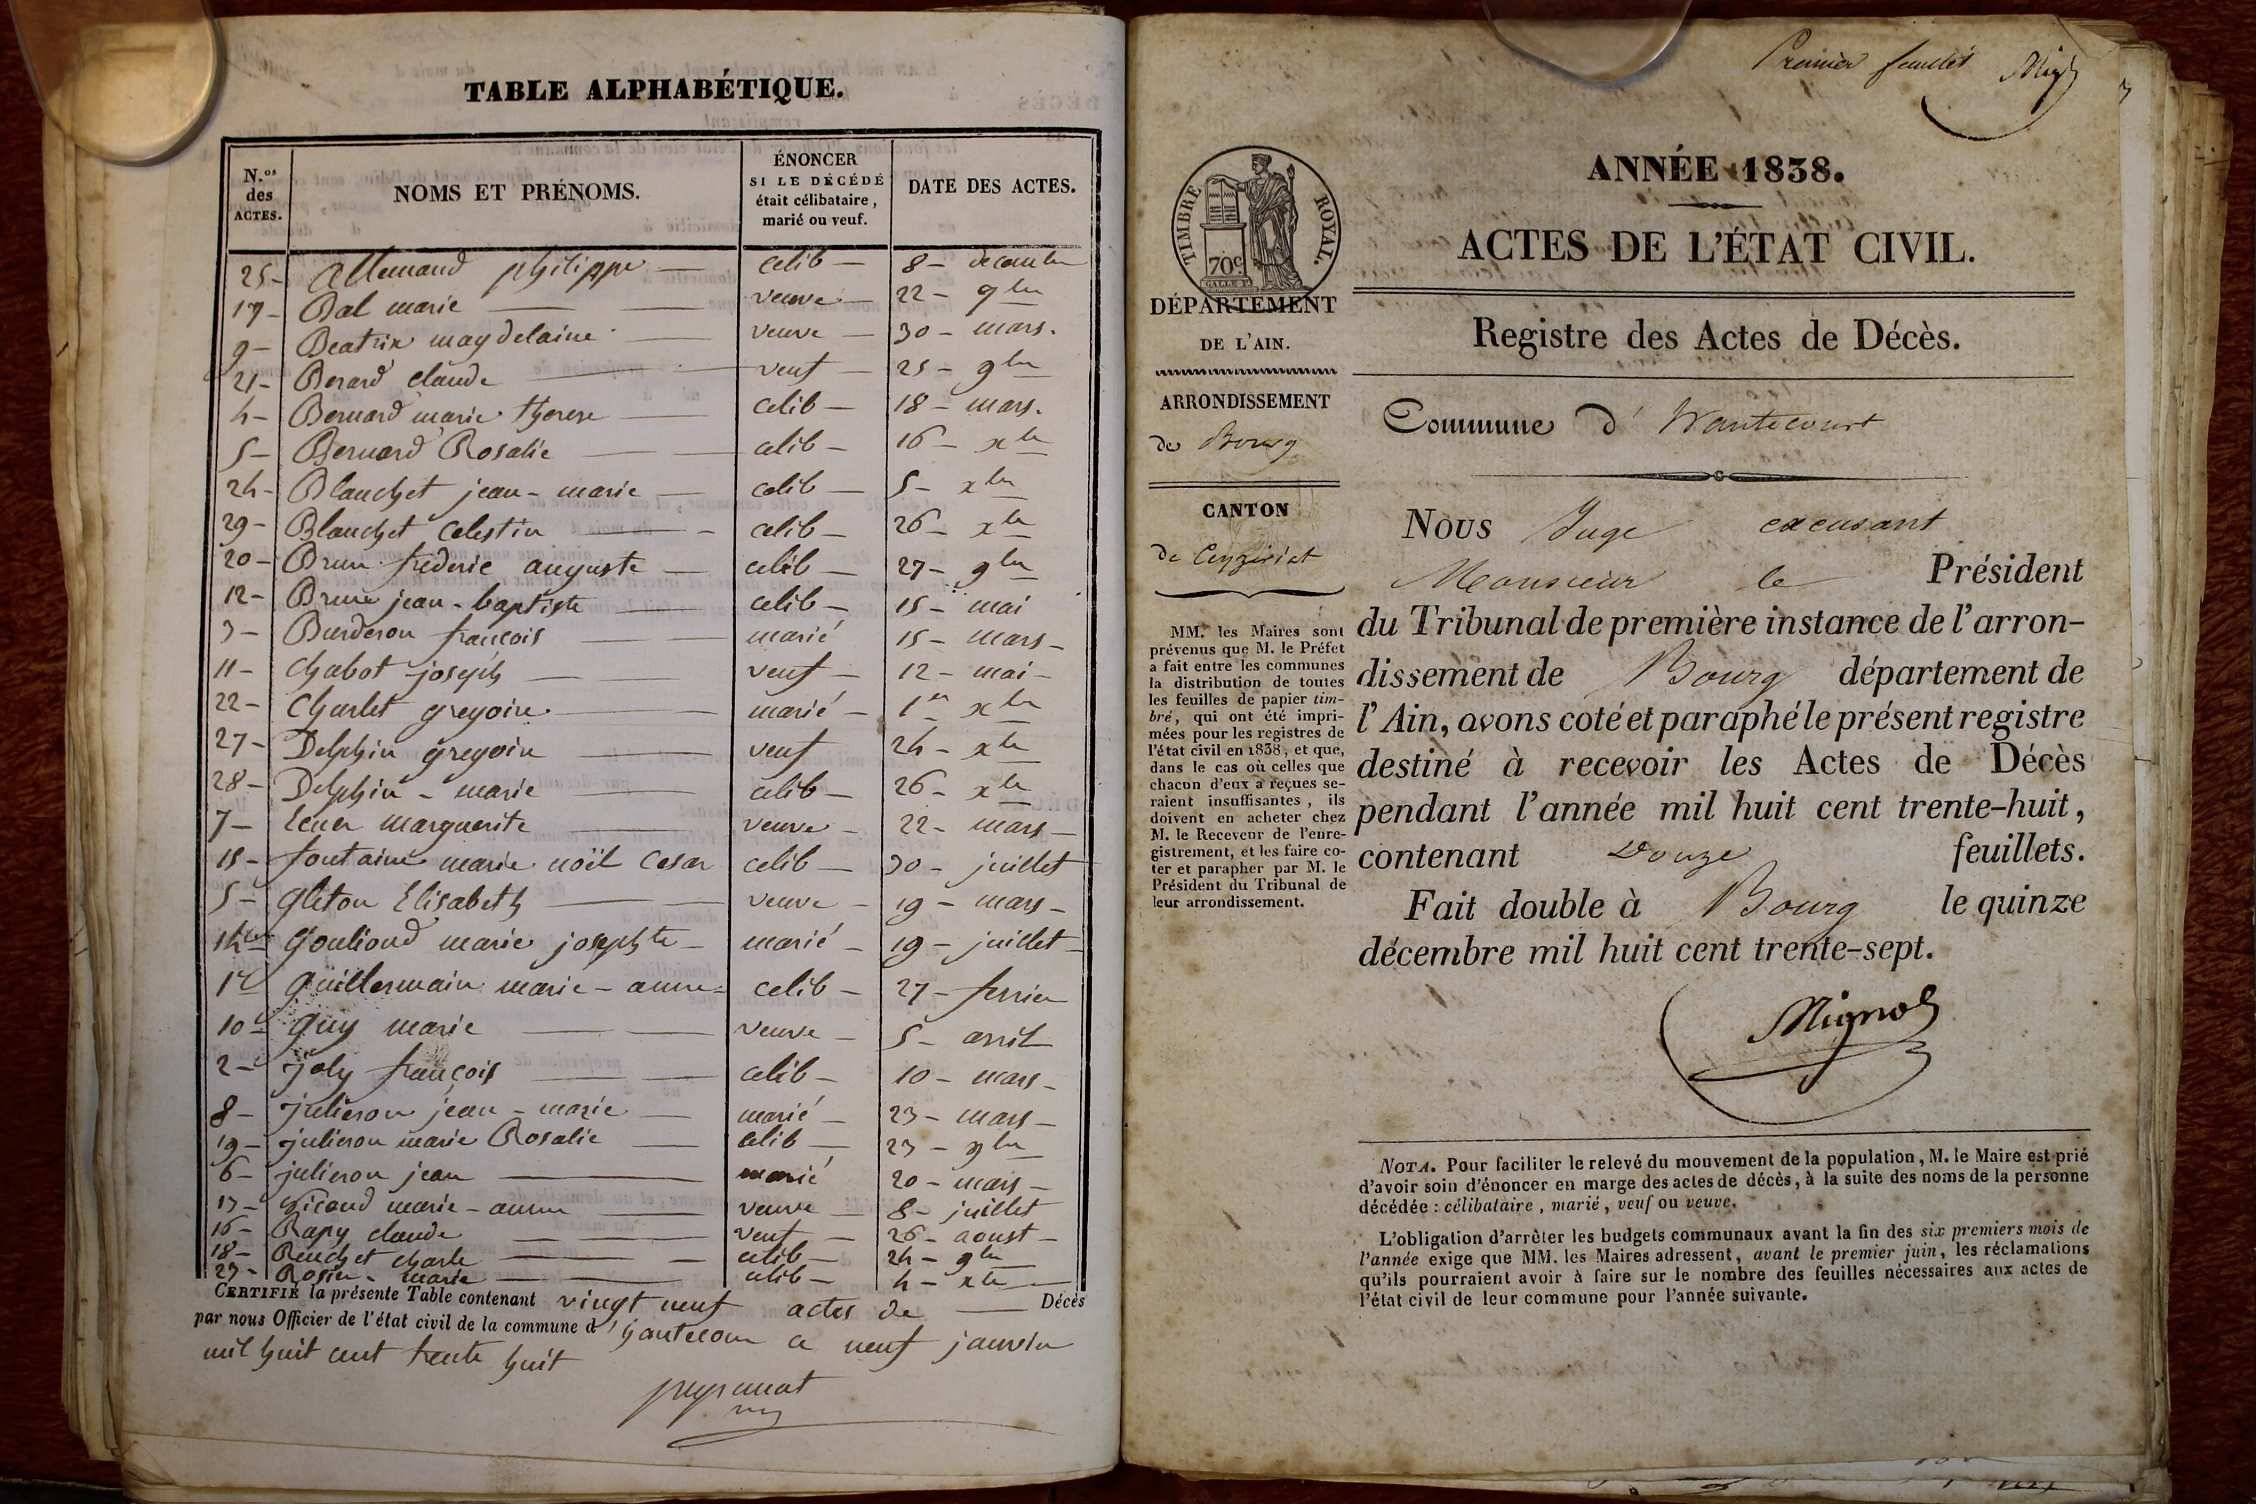 TABLE ALPHABÉTIQUE.
N.os des ACTES.
NOMS ET PRÉNOMS.
ÉNONCER SI LE DÉCÉDÉ était célibataire, marié ou veuf.
DATE DES ACTES.
25 - Allemand philippe — celib — 8 - decembre
17 - Bal marie — veuve — 22 - 9bre
9 - Beatrix magdelaine — veuve — 30 - mars.
21 - Berard claude — veuf — 25 - 9bre
4 - Bernard marie therese — celib — 18 - mars.
5 - Bernard Rosalie — celib — 16 - xbre
24 - Blanchet jean - marie — celib — 5 - xbre
29 - Blanchet Celestin — celib — 26 - xbre
20 - Brun frederic auguste — celib — 27 - 9bre
12 - Brun jean - baptiste — celib — 15 - mai
3 - Burderon francois — marié — 15 - mars -
11 - Chabot joseph — veuf — 12 - mai -
22 - Charlet gregoire — marié — 1er xbre
27 - Delphin gregoire — veuf — 24 - xbre
28 - Delphin - marie — celib — 26 - xbre
7 - marguerite — veuve — 22 - mars -
15 - fontaine marie noël Cesar celib — 30 - juillet
5 - gleton Elisabeth — veuve — 19 - mars -
14 - Goulioud marie josephte — marié — 19 - juillet -
1er guillermain marie - anne - celib — 27 - fevrier
10 - guy marie — veuve — 5 - avril
2 - joly françois — celib — 10 - mars -
8 - julieron jean - marie — marié — 23 - mars -
19 - julieron marie Rosalie — celib — 23 - 9bre
6 - julieron jean — marié 20 - mars -
13 - marie - anne — veuve — 8 - juillet
16 - Rapy claude — veuf — 26 - aoust -
18 - charle — celib — 24 - 9bre
23 - Rosier - marie — celib — 4 - xbre
CERTIFIÉ la présente Table contenant vingt neuf actes de — Décès
par nous Officier de l'état civil de la commune d'hautecour ce neuf janvier
mil huit cent trente huit
Premier feuillet
ANNÉE 1838.
ACTES DE L'ÉTAT CIVIL.
Registre des Actes de Décès.
Commune d' hautecourt
TIMBRE ROYAL.
70c
DÉPARTEMENT
DE L'AIN.
ARRONDISSEMENT
de Bourg
CANTON
de Ceyzeriat
MM. les Maires sont
prévenus que M. le Préfet
a fait entre les communes
la distribution de toutes
les feuilles de papier tim-
bré, qui ont été impri-
mées pour les registres de
l'état civil en 1838, et que,
dans le cas où celles que
chacun d'eux a reçues se-
raient insuffisantes, ils
doivent en acheter chez
M. le Receveur de l'enre-
gistrement, et les faire co-
ter et parapher par M. le
Président du Tribunal de
leur arrondissement.
Nous Juge excusant
Monsieur le Président
du Tribunal de première instance de l'arron-
dissement de Bourg département de
l'Ain, avons coté et paraphé le présent registre
destiné à recevoir les Actes de Décès
pendant l'année mil huit cent trente-huit,
contenant Douze feuillets.
Fait double à Bourg le quinze
décembre mil huit cent trente-sept.
NOTA. Pour faciliter le relevé du mouvement de la population, M. le Maire est prié
d'avoir soin d'énoncer en marge des actes de décès, à la suite des noms de la personne
décédée : célibataire, marié, veuf ou veuve.
L'obligation d'arrêter les budgets communaux avant la fin des six premiers mois de
l'année exige que MM. les Maires adressent, avant le premier juin, les réclamations
qu'ils pourraient avoir à faire sur le nombre des feuilles nécessaires aux actes de
l'état civil de leur commune pour l'année suivante.